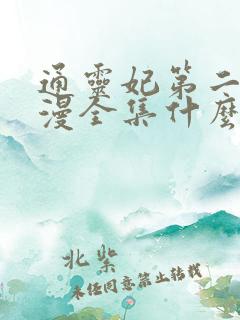 通靈妃第二
漫全集什麼
北柴
未经同意禁止转载